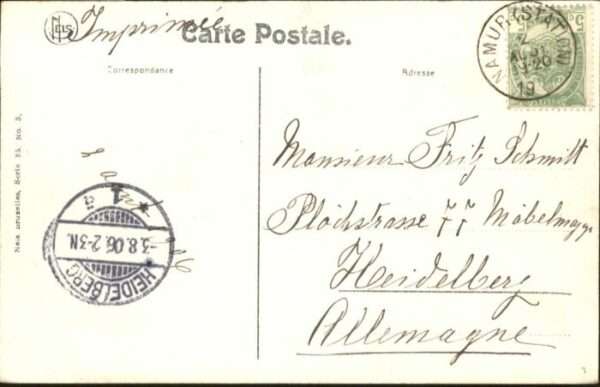 Imprimée
Carte Postale.
Correspondance
Adresse
NAMUR (STATION)
19
5
Monsieur Fritz Schmitt
Plöckstrasse 77 Möbelmagg
Heidelberg
Allemagne
HEIDELBERG
3.8.06 2-3N.
1
a
Nels Bruxelles, Serie 35 No. 3.
NELS